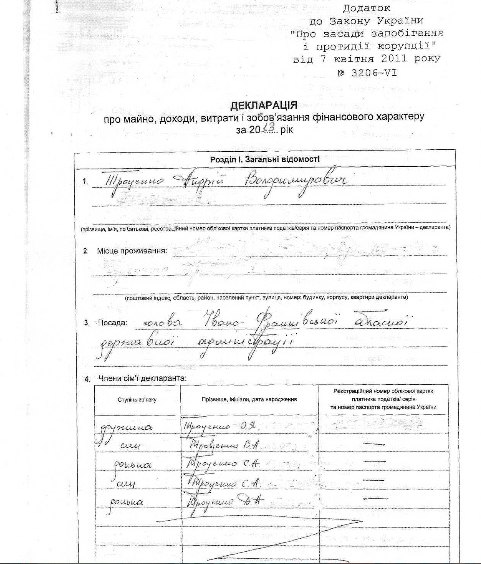 Додаток
до Закону України
"Про засади запобігання
і протидії корупції"
від 7 квітня 2011 року
№ 3206-VI
ДЕКЛАРАЦІЯ
про майно, доходи, витрати і зобов'язання фінансового характеру
за 2013 рік
Розділ I. Загальні відомості
1. Троценко Андрій Володимирович
(прізвище, ім'я, по батькові, реєстраційний номер облікової картки платника податків/серія та номер паспорта громадянина України – декларанта)
2 Місце проживання:
(поштовий індекс, область, район, населений пункт, вулиця, номер: будинку, корпусу, квартири декларанта)
3. Посада: голова Івано-Франківської обласної
державної адміністрації
4. Члени сім'ї декларанта:
Ступінь зв'язку
Прізвище, ініціали, дата народження
Реєстраційний номер облікової картки
платника податків/ серія
та номер паспорта громадянина України
дружина Троценко О.Я.
син Троценко В.А. —
донька Троценко С.А. —
син Троценко Є.А. —
донька Троценко В.А. —